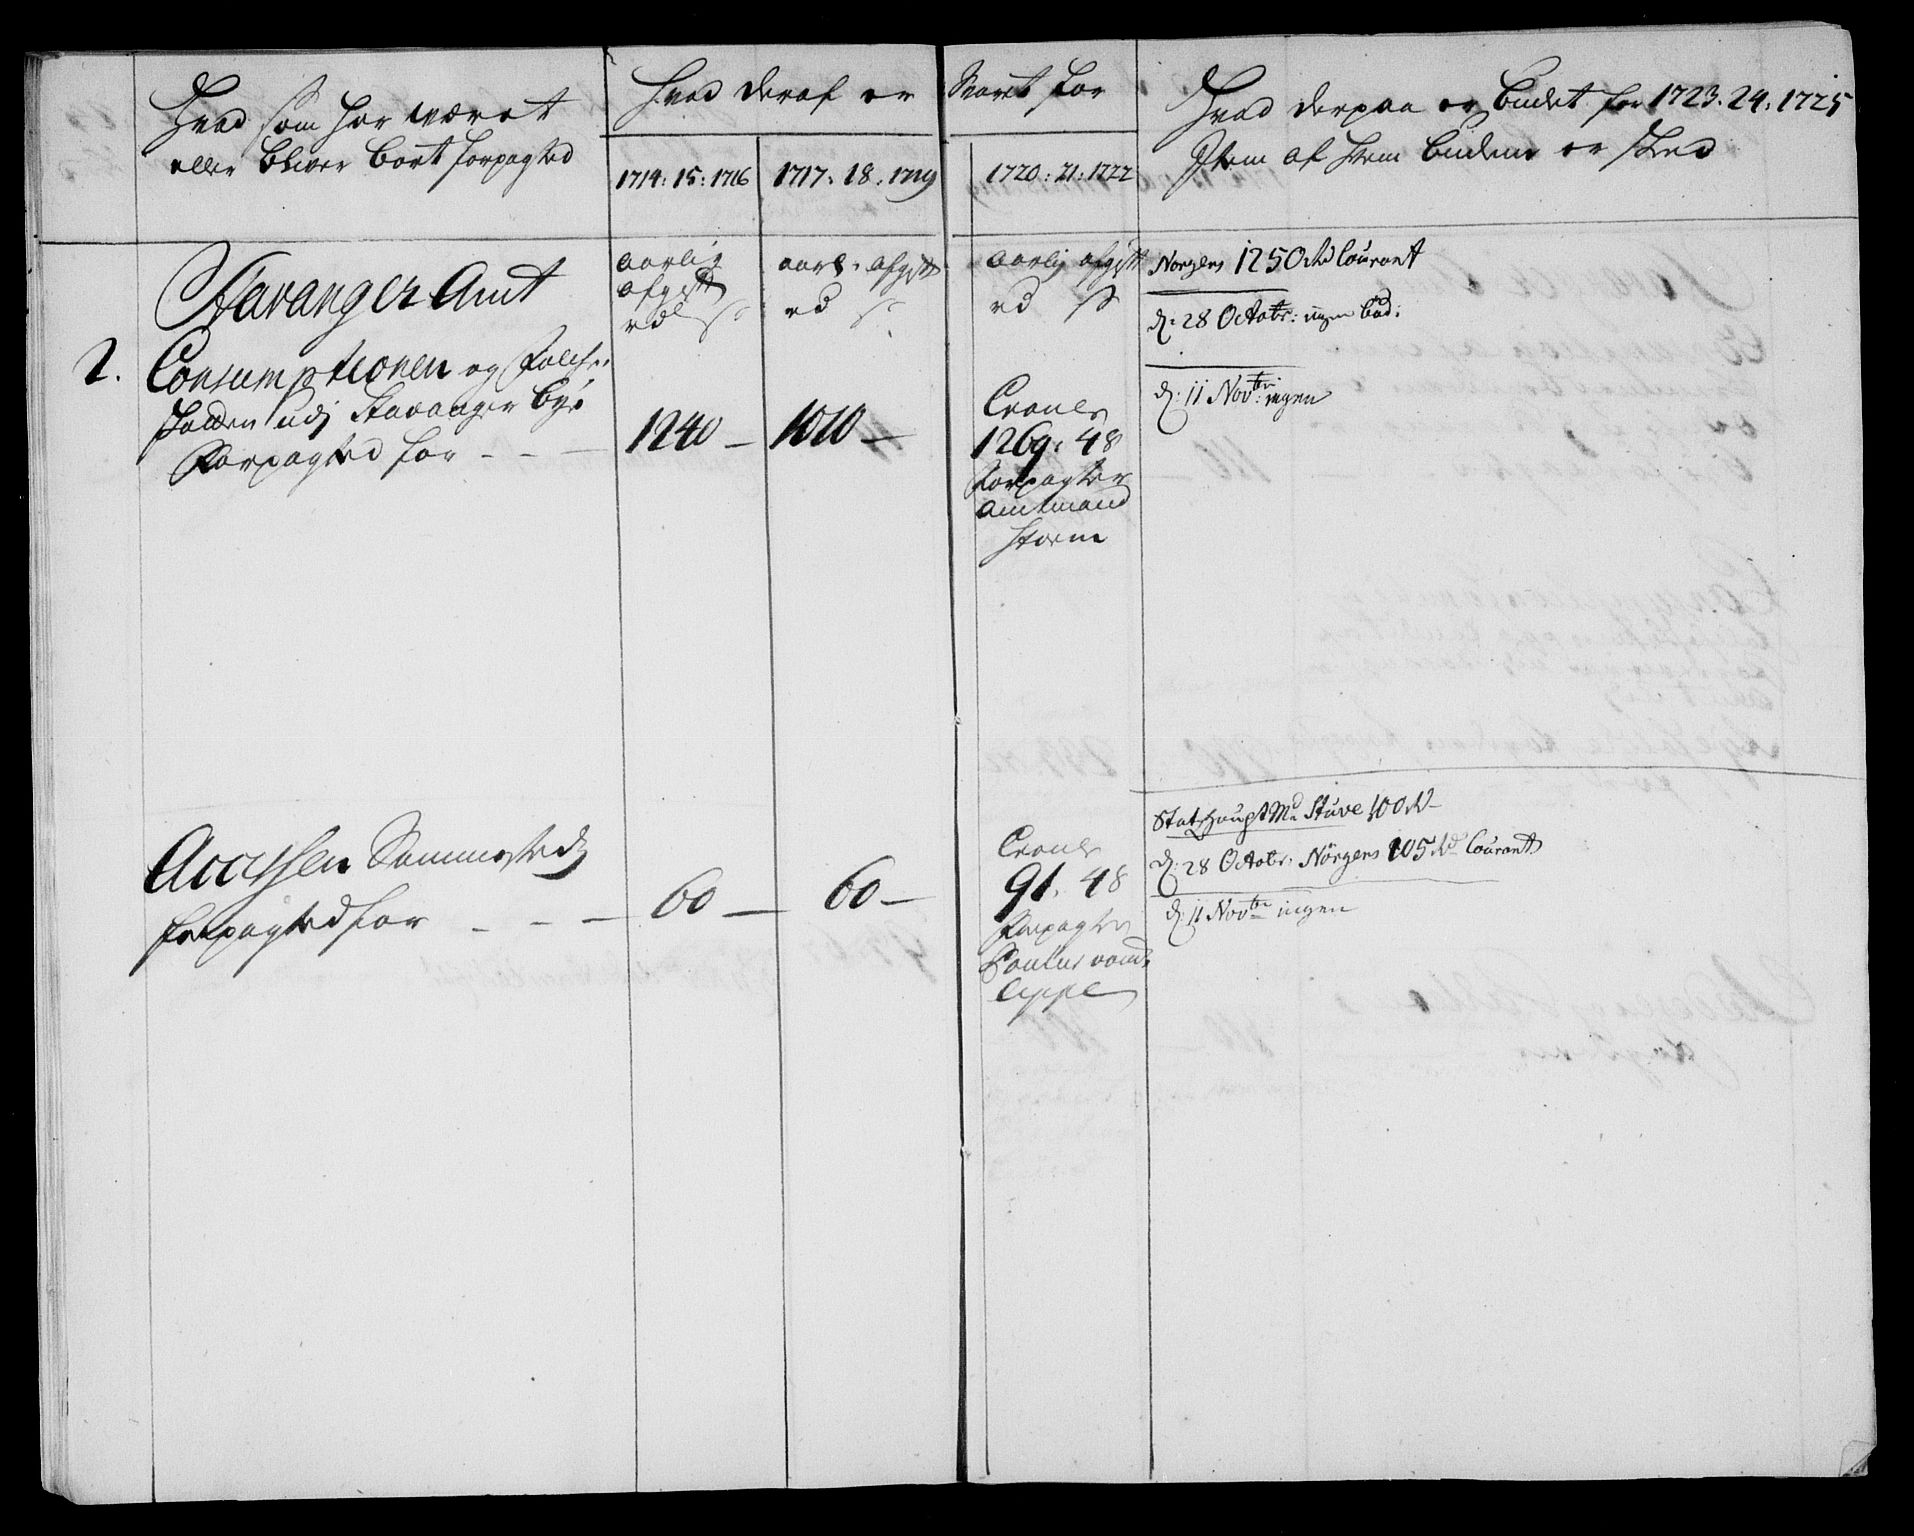 Hvad som har været
eller bliver bort forpagted
Hvad deraf er svaret for
1714: 15: 1716
1717. 18. 1719
1720: 21: 1722
Hvad derpaa er budet for 1723. 24. 1725
Item af hvem budene er skeed
Stavanger Amt
aarlig
afgift
rdl s
aarl. afgift
rd s
aarlig afgift
rd s
Norgens 1250 rd Courant
d: 28 Octobr: ingen bud:
d: 11 Novbr: ingen
2. Consumptionen og Folche
Skatten udj Stavanger bye
Forpagted for - - -
1240 -
1010 -
Croner
1269: 48
Forpagter
Amtmand
Storm
Accisen Sammesteds
forpagted for - - -
60 -
60 -
Croner
91. 48
Forpagter
Poulus vond
Lippe
StatsHauptMd Stuve 100 rd
d. 28 Octobr. Nörgens 105 rd Courant
d: 11 Novbr ingen